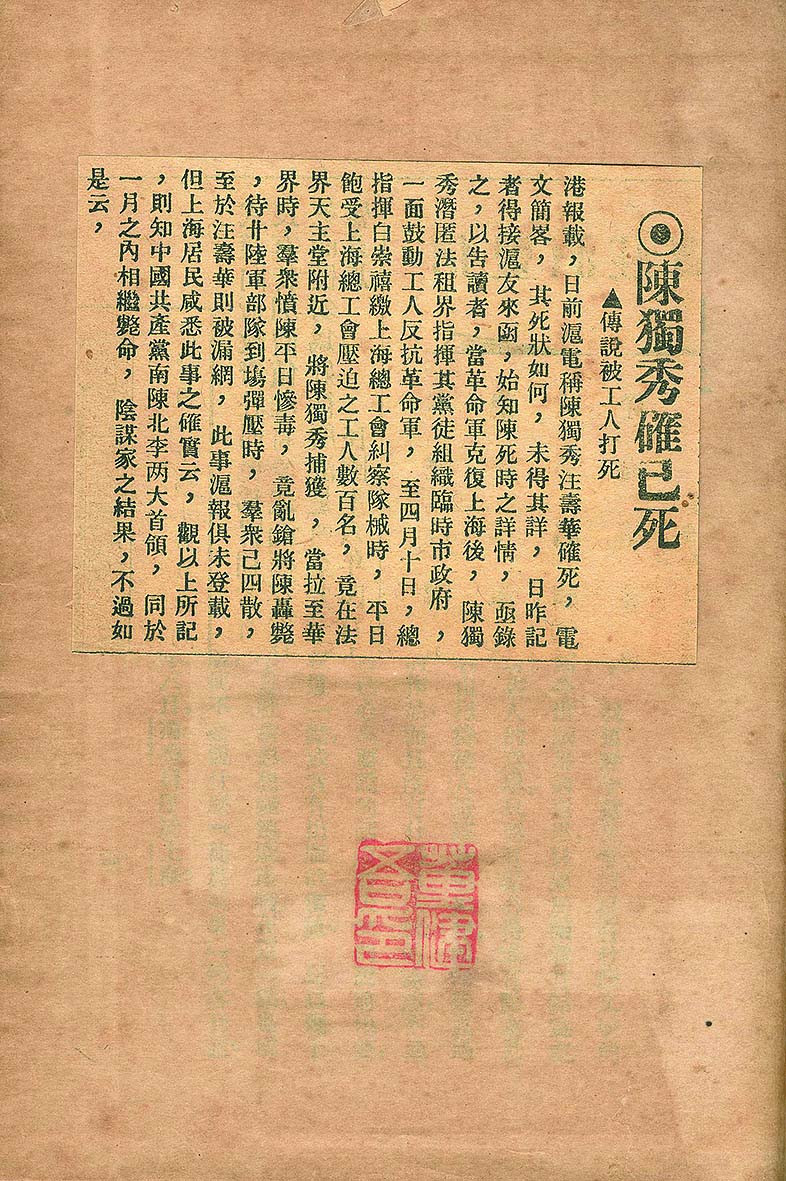 ◉陳獨秀確已死
▲傳說被工人打死
港報載，日前滬電稱陳獨秀汪壽華確死，電
文簡畧，其死狀如何，未得其詳，日昨記
者得接滬友來函，始知陳死時之詳情，亟錄
之，以告讀者，當革命軍克復上海後，陳獨
秀潛匿法租界指揮其黨徒組織臨時市政府，
一面鼓動工人反抗革命軍，至四月十日，總
指揮白崇禧繳上海總工會糾察隊械時，平日
飽受上海總工會壓迫之工人數百名，竟在法
界天主堂附近，將陳獨秀捕獲，當拉至華
界時，羣衆憤陳平日慘毒，竟亂鎗將陳轟斃
，待廿陸軍部隊到塲彈壓時，羣衆已四散，
至於汪壽華則被漏網，此事滬報俱未登載，
但上海居民咸悉此事之確實云，觀以上所記
，則知中國共產黨南陳北李两大首領，同於
一月之內相繼斃命，陰謀家之結果，不過如
是云，